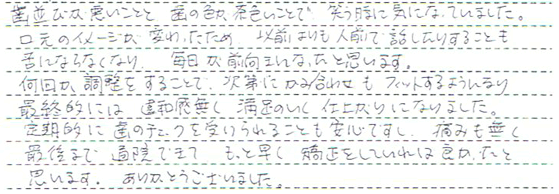 歯並びが悪いことと 歯の色が茶色いことで 笑う時に気になっていました。
口元のイメージが変わったため 以前よりも人前で話したりすることも
苦にならなくなり 毎日が前向きになったと思います。
何回か調整をすることで、次第にかみ合わせもフィットするようになり
最終的には 違和感無く 満足のいく仕上がりになりました。
定期的に歯のチェックを受けられることも安心ですし、痛みも無く
最後まで通院できて もっと早く矯正をしていれば良かったと
思います。 ありがとうございました。